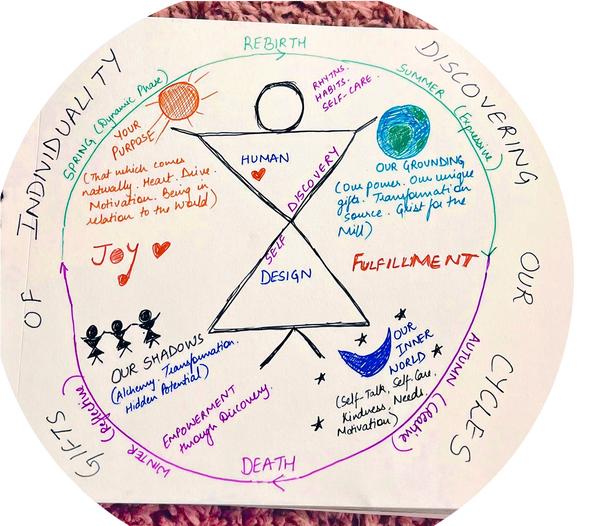 DISCOVERING
OUR
CYCLES
GIFTS
OF
INDIVIDUALITY
REBIRTH
SPRING (Dynamic Phase)
SUMMER (Expressive)
AUTUMN (Creative)
DEATH
WINTER (Reflective)
YOUR
PURPOSE
(That which comes
naturally. Heart. Drive.
Motivation. Being in
relation to the World)
RHYTMS.
HABITS.
SELF-CARE.
HUMAN
DESIGN
SELF DISCOVERY
OUR GROUNDING
(Our power. Our unique
gifts. Transformation
source. Grist for the
Mill)
JOY
FULFILLMENT
OUR SHADOWS
(Alchemy. Transformation.
Hidden Potential)
EMPOWERMENT
through Discovery.
OUR
INNER
WORLD
(Self-Talk, Self-Care,
Kindness, Needs,
Motivation)